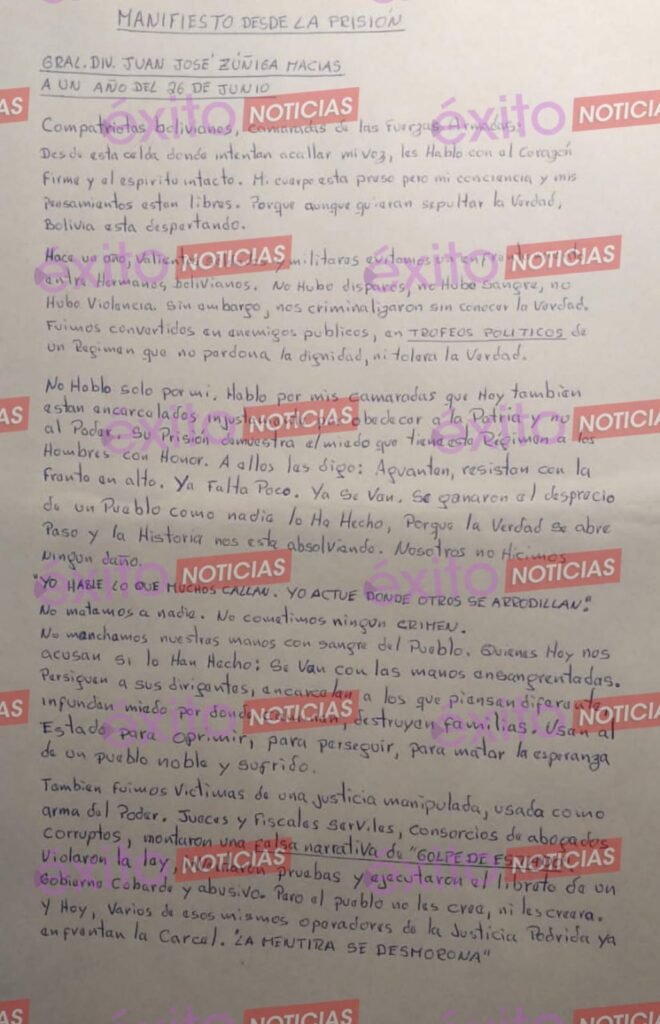 MANIFIESTO DESDE LA PRISIÓN
GRAL. DIV. JUAN JOSÉ ZÚÑIGA MACIAS
A UN AÑO DEL 26 DE JUNIO
Compatriotas bolivianos, camaradas de las Fuerzas Armadas:
Desde esta celda donde intentan acallar mi voz, les Hablo con el Corazón
Firme y el espiritu intacto. Mi cuerpo esta preso pero mi conciencia y mis
pensamientos estan libres. Porque aunque quieran sepultar la Verdad,
Bolivia esta despertando.
Hace un año, valientes y militares evitamos un
entre Hermanos bolivianos. No Hubo disparos, no Hubo Sangre, no
Hubo Violencia. Sin embargo, nos criminalizaron sin conocer la Verdad.
Fuimos convertidos en enemigos publicos, en TROFEOS POLITICOS de
un Regimen que no perdona la dignidad, ni tolera la Verdad.
No Hablo solo por mi. Hablo por mis camaradas que Hoy tambien
estan encarcelados injustamente por obedecer a la Patria y no
al Poder. Su Prisión demuestra el miedo que tiene este Régimen a los
Hombres con Honor. A ellos les digo: Aguanten, resistan con la
frente en alto. Ya Falta Poco. Ya Se Van. Se ganaron el desprecio
de un Pueblo como nadie lo Ha Hecho, Porque la Verdad se abre
Paso y la Historia nos esta absolviendo. Nosotros no Hicimos
Ningun daño.
"YO HABLE LO QUE MUCHOS CALLAN. YO ACTUE DONDE OTROS SE ARRODILLAN".
No matamos a nadie. No cometimos ningun CRIMEN.
No manchamos nuestras manos con sangre del Pueblo. Quienes Hoy nos
acusan si lo Han Hecho: Se Van con las manos ensangrentadas.
Persiguen a sus dirigentes, encarcelan a los que piensan diferente,
infunden miedo por donde, destruyen familias. Usan al
Estado para oprimir, para perseguir, para matar la esperanza
de un pueblo noble y sufrido.
Tambien fuimos Victimas de una justicia manipulada, usada como
arma del Poder. Jueces y Fiscales serviles, consorcios de abogados
corruptos, montaron una Falsa narrativa de "GOLPE DE ESTADO".
Violaron la ley, pruebas y ejecutaron el libreto de un
Gobierno Cobarde y abusivo. Pero el pueblo no les cree, ni les creera.
Y Hoy, Varios de esos mismos operadores de la Justicia Podrida ya
enfrentan la Carcel. "LA MENTIRA SE DESMORONA"
éxito NOTICIAS